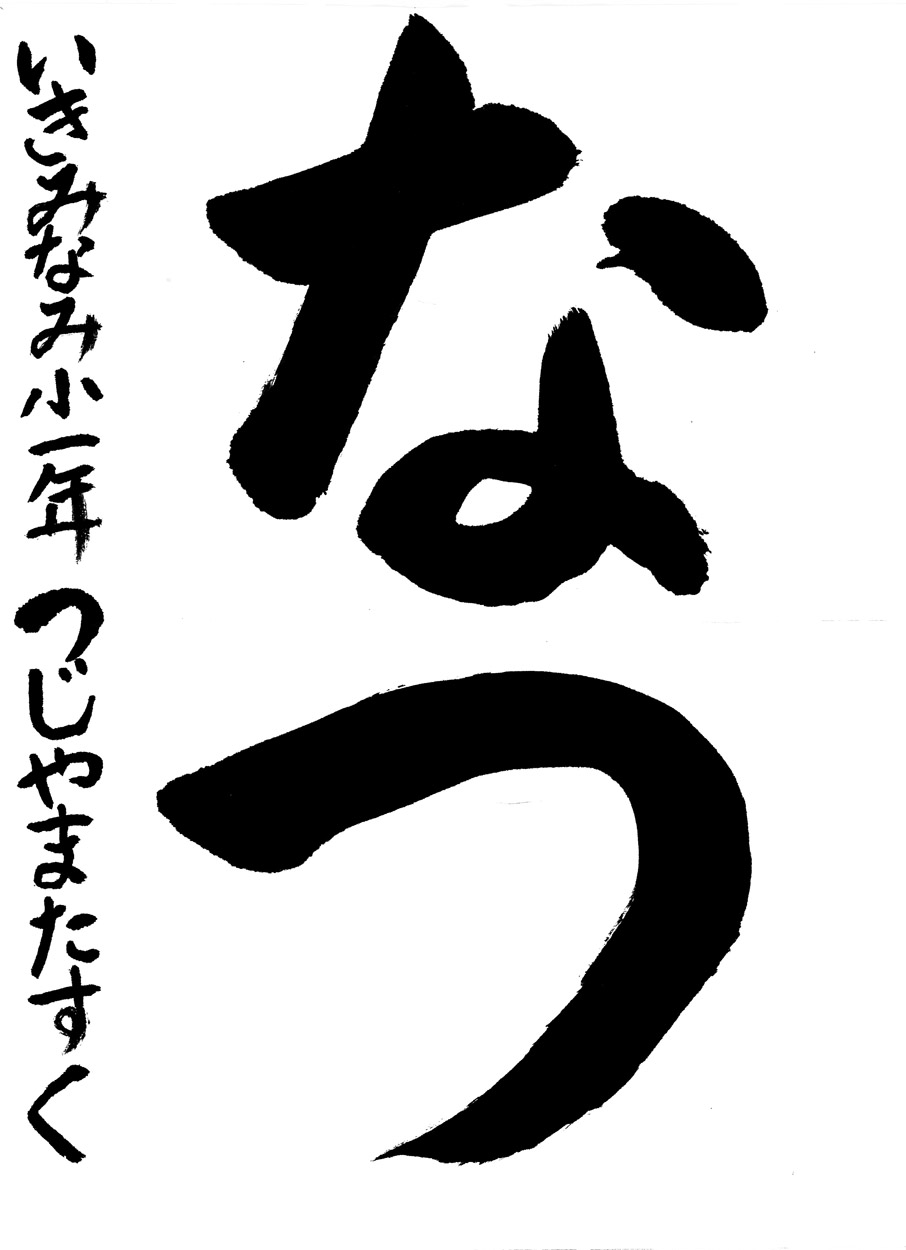 なつ
いきみなみ小一年 つじやまたすく